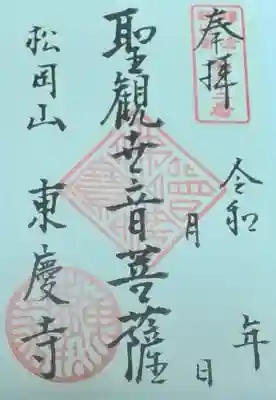 奉拝
令和 年 月 日
聖観世音菩薩
松岡山 東慶寺